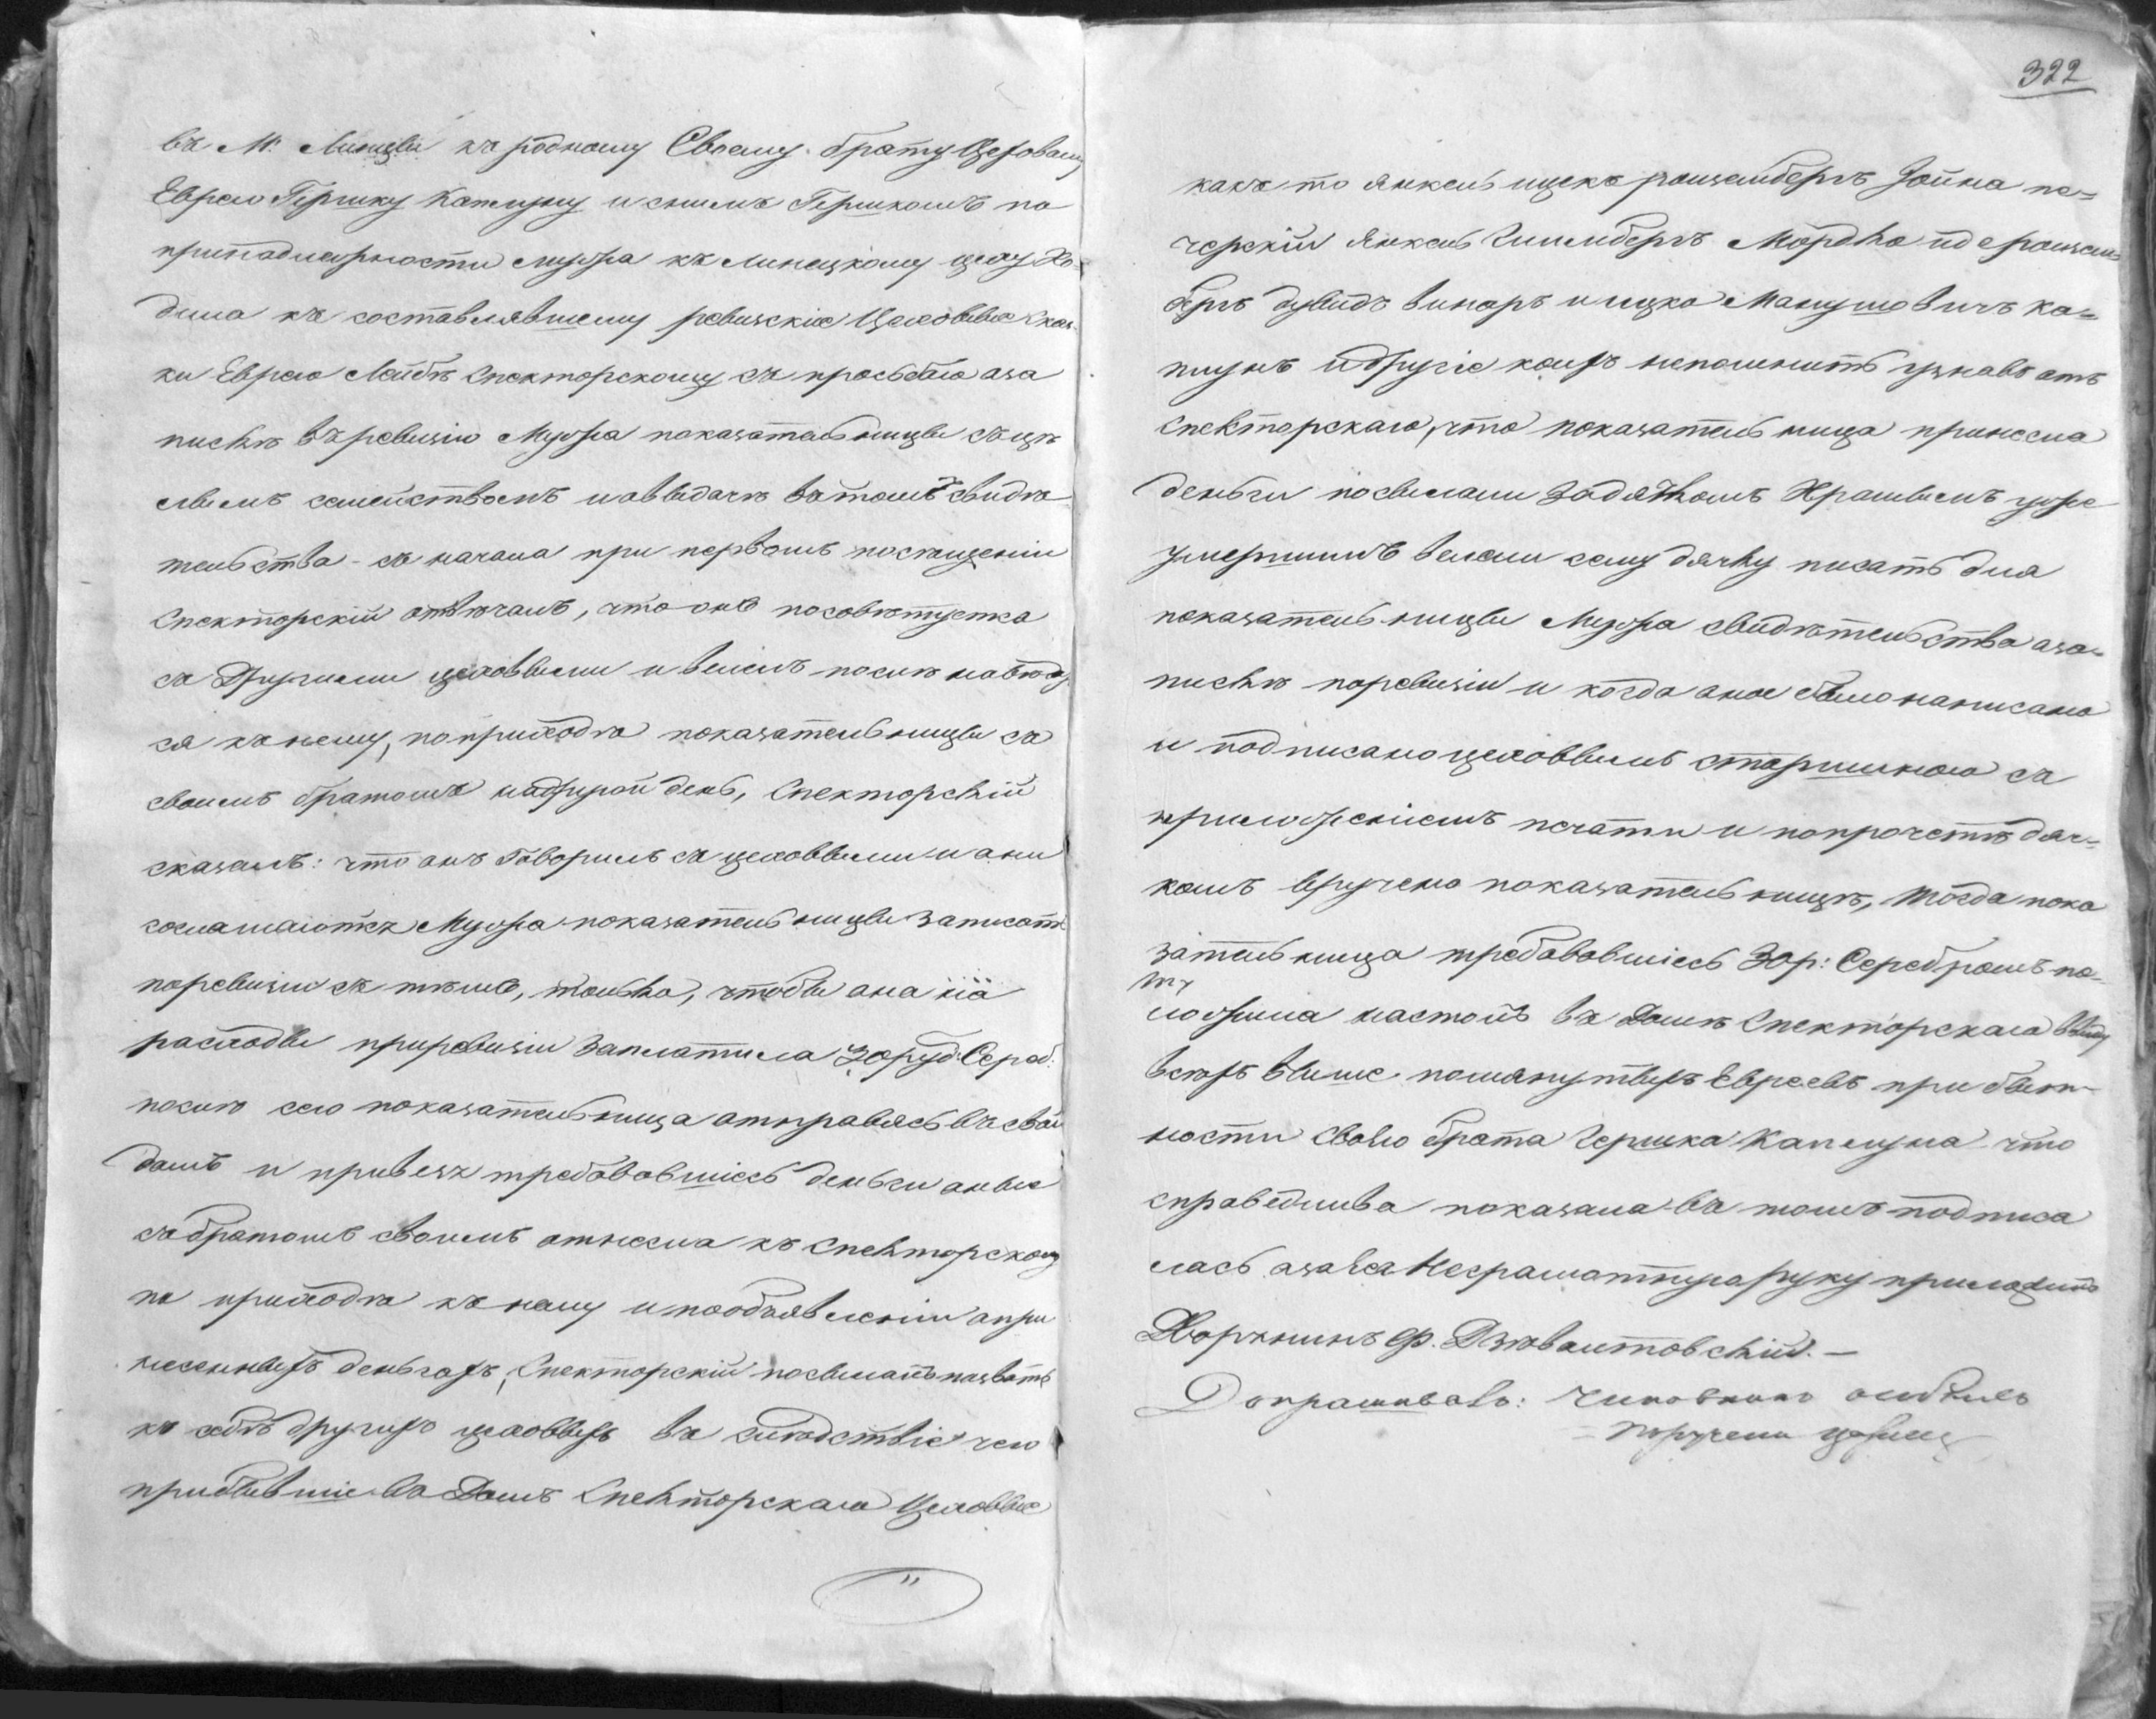 въ М. Липцы къ родному Своему брату Цеховому
Еврею Гершку Каплуну и снимъ Гершкомъ по
принадлежности мужа къ липецкому цеху Хо-
дила къ составлявшему ревизскіе Цеховые Сказ-
ки Еврею Лейбѣ Спекторскому съ просьбою аза
пискѣ въ ревизію Мужа показательницы съ цѣ
лымъ семействомъ и авыдачѣ въ томъ свидѣ
тельства - съ начала при первомъ посѣщеніи
Спекторскій отвѣчалъ, что онъ посовѣтуется
съ Другими цеховыми и велелъ послѣ навѣд
ся къ нему, поприходѣ показательницы съ
своимъ братомъ надругой день, Спекторскій
сказалъ: что анъ Говорилъ съ цеховыми и они
соглашаются Мужа показательницы записать
поревизіи съ тѣмъ, только, чтобы она на
расходы приревизіи Заплатила 30 руб. Сереб.
послѣ сего показательница отправясь въ свой
домъ и привезя требовавшіесь деньги аные
забратомъ своимъ отнесла къ Спекторскому
по приходѣ къ нему и пообъявленіи апри
несенныхъ деньгахъ, Спекторскій посылалъ позвать
къ себѣ другихъ цеховыхъ въ слѣдствіе чего
прибывшіе въ Домъ Спекторскаго Цеховые
322
какъ то Янкель ицекъ розенбергъ Хойна пе=
черскій Янкель Гинзбергъ Мордко розен
бергъ дувидъ винаръ ицко Манушовичъ Ка=
плунъ идругіе коихъ непомнитъ узнавъ отъ
Спекторскаго, что показательница принесла
деньги посылали Задячкомъ Храмымъ уже
умершимъ велели сему дячку писать для
показательницы Мужа свидѣтельства аза=
пискѣ поревизіи и когда аное было написано
и подписано цеховымъ старшиною съ
приложеніемъ печати и попрочетѣ дяч=
комъ вручено показательницѣ, тогда пока
зательница требовавшіесь 30 р: Серебромъ по-
ложила настолъ въ Домѣ Спекторскаго ввиду
всехъ выше помянутыхъ Евреевъ при быт-
ности своего брата Гершка Каплуна что
справедливо показала въ томъ подписа
лась азанея Неграмотную руку приложилъ
Дворянинъ Ф.
Допрашивалъ: Чиновникъ особыхъ
порученій